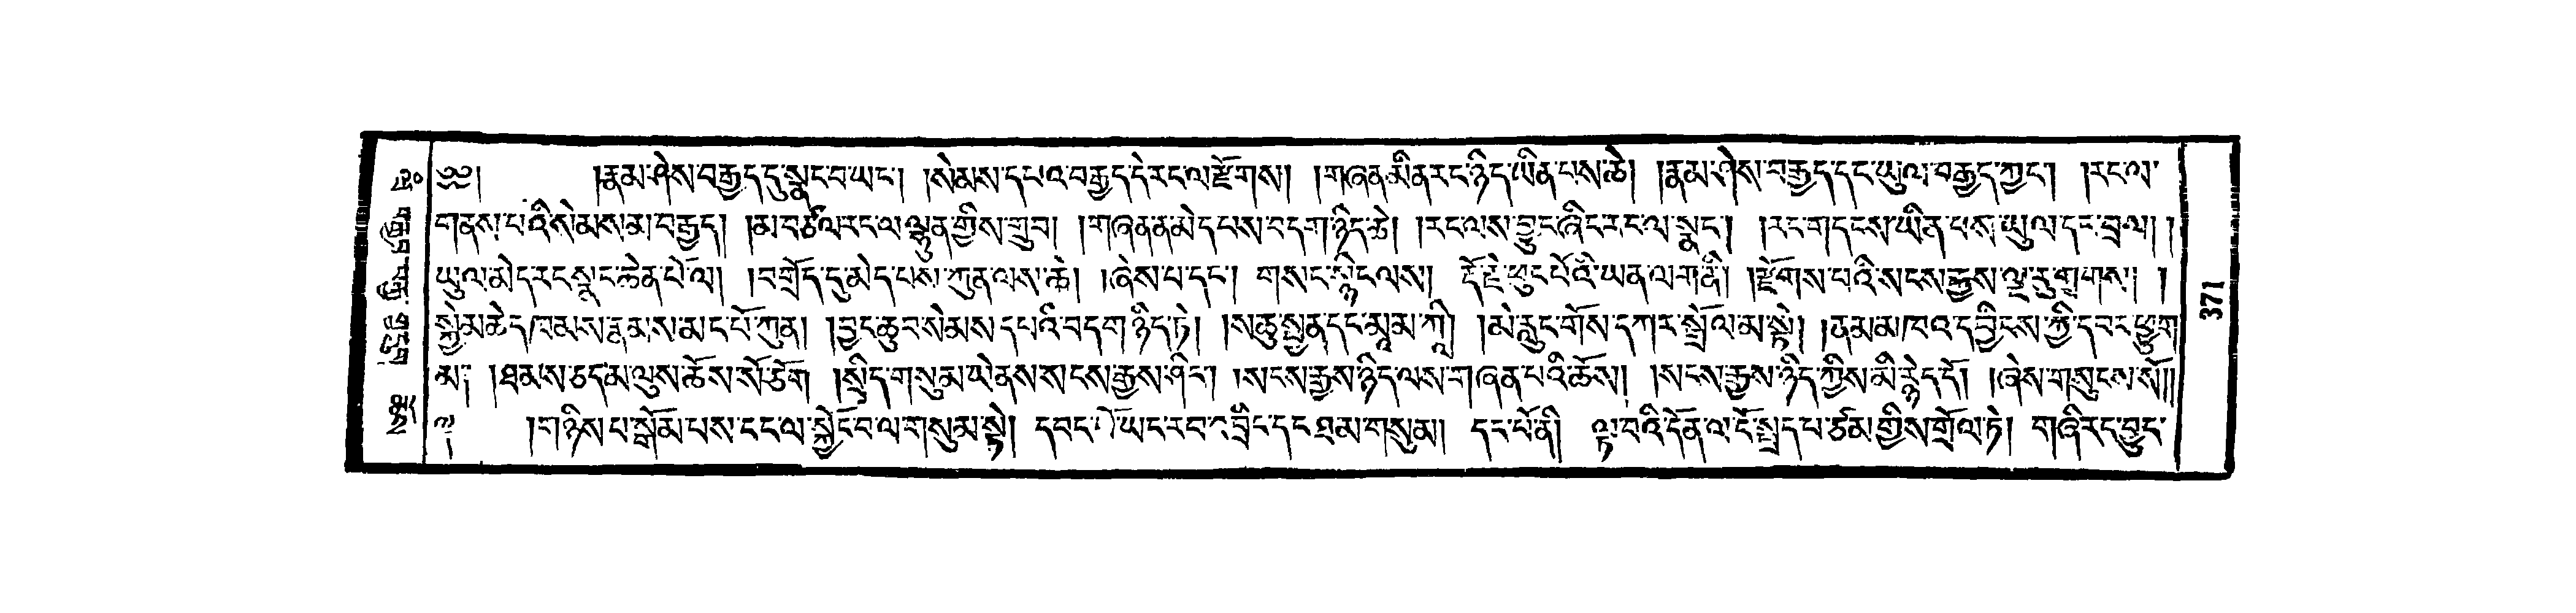 ༄༅། །རྣམ་ཤེས་བརྒྱད་དུ་སྣང་བ་ཡང་། །སེམས་དཔའ་བརྒྱད་དེ་རང་ལ་རྫོགས། །གཞན་མིན་རང་ཉིད་ཡིན་པས་ཆེ། །རྣམ་ཤེས་བརྒྱད་དང་ཡུལ་བརྒྱད་ཀྱང་། །རང་ལ་
གནས་པའི་སེམས་མ་བརྒྱད། །མ་བཙལ་རང་ལ་ལྷུན་གྱིས་གྲུབ། །གཞན་ན་མེད་པས་བདག་ཉིད་ཆེ། །རང་ལས་བྱུང་ཞིང་རང་ལ་སྣང་། །རང་གདངས་ཡིན་པས་ཡུལ་དང་བྲལ། །
ཡུལ་མེད་རང་སྣང་ཆེན་པོ་ལ། །བགྲོད་དུ་མེད་པས་ཀུན་ལས་ཆེ། །ཞེས་པ་དང་། གསང་སྙིང་ལས། རྡོ་རྗེ་ཕུང་པོའི་ཡན་ལག་ནི། །རྫོགས་པའི་སངས་རྒྱས་ལྔ་རུ་གྲགས། །
སྐྱེ་མཆེད་ཁམས་རྣམས་མང་པོ་ཀུན། །བྱང་ཆུབ་སེམས་དཔའི་བདག་ཉིད་ཏེ། །ས་ཆུ་སྤྱན་དང་མཱ་མ་ཀཱི། །མེ་རླུང་གོས་དཀར་སྒྲོལ་མ་སྟེ། །ནམ་མཁའ་དབྱིངས་ཀྱི་དབང་ཕྱུག་
མ། །ཐམས་ཅད་མ་ལུས་ཆོས་སོ་ཅོག །སྲིད་གསུམ་ཡེ་ནས་སངས་རྒྱས་ཤིང་། །སངས་རྒྱས་ཉིད་ལས་གཞན་པའི་ཆོས། །སངས་རྒྱས་ཉིད་ཀྱིས་མི་རྙེད་དོ། །ཞེས་གསུངས་སོ།།
།གཉིས་པ་སྒོམ་པས་ངང་ལ་སྐྱོང་བ་ལ་གསུམ་སྟེ། དབང་པོ་ཡང་རབ་འབྲིང་དང་ཐ་མ་གསུམ། དང་པོ་ནི། ལྟ་བའི་དོན་ལ་ངོ་སྤྲད་པ་ཙམ་གྱིས་གྲོལ་ཏེ། གཞི་རང་བྱུང་
371